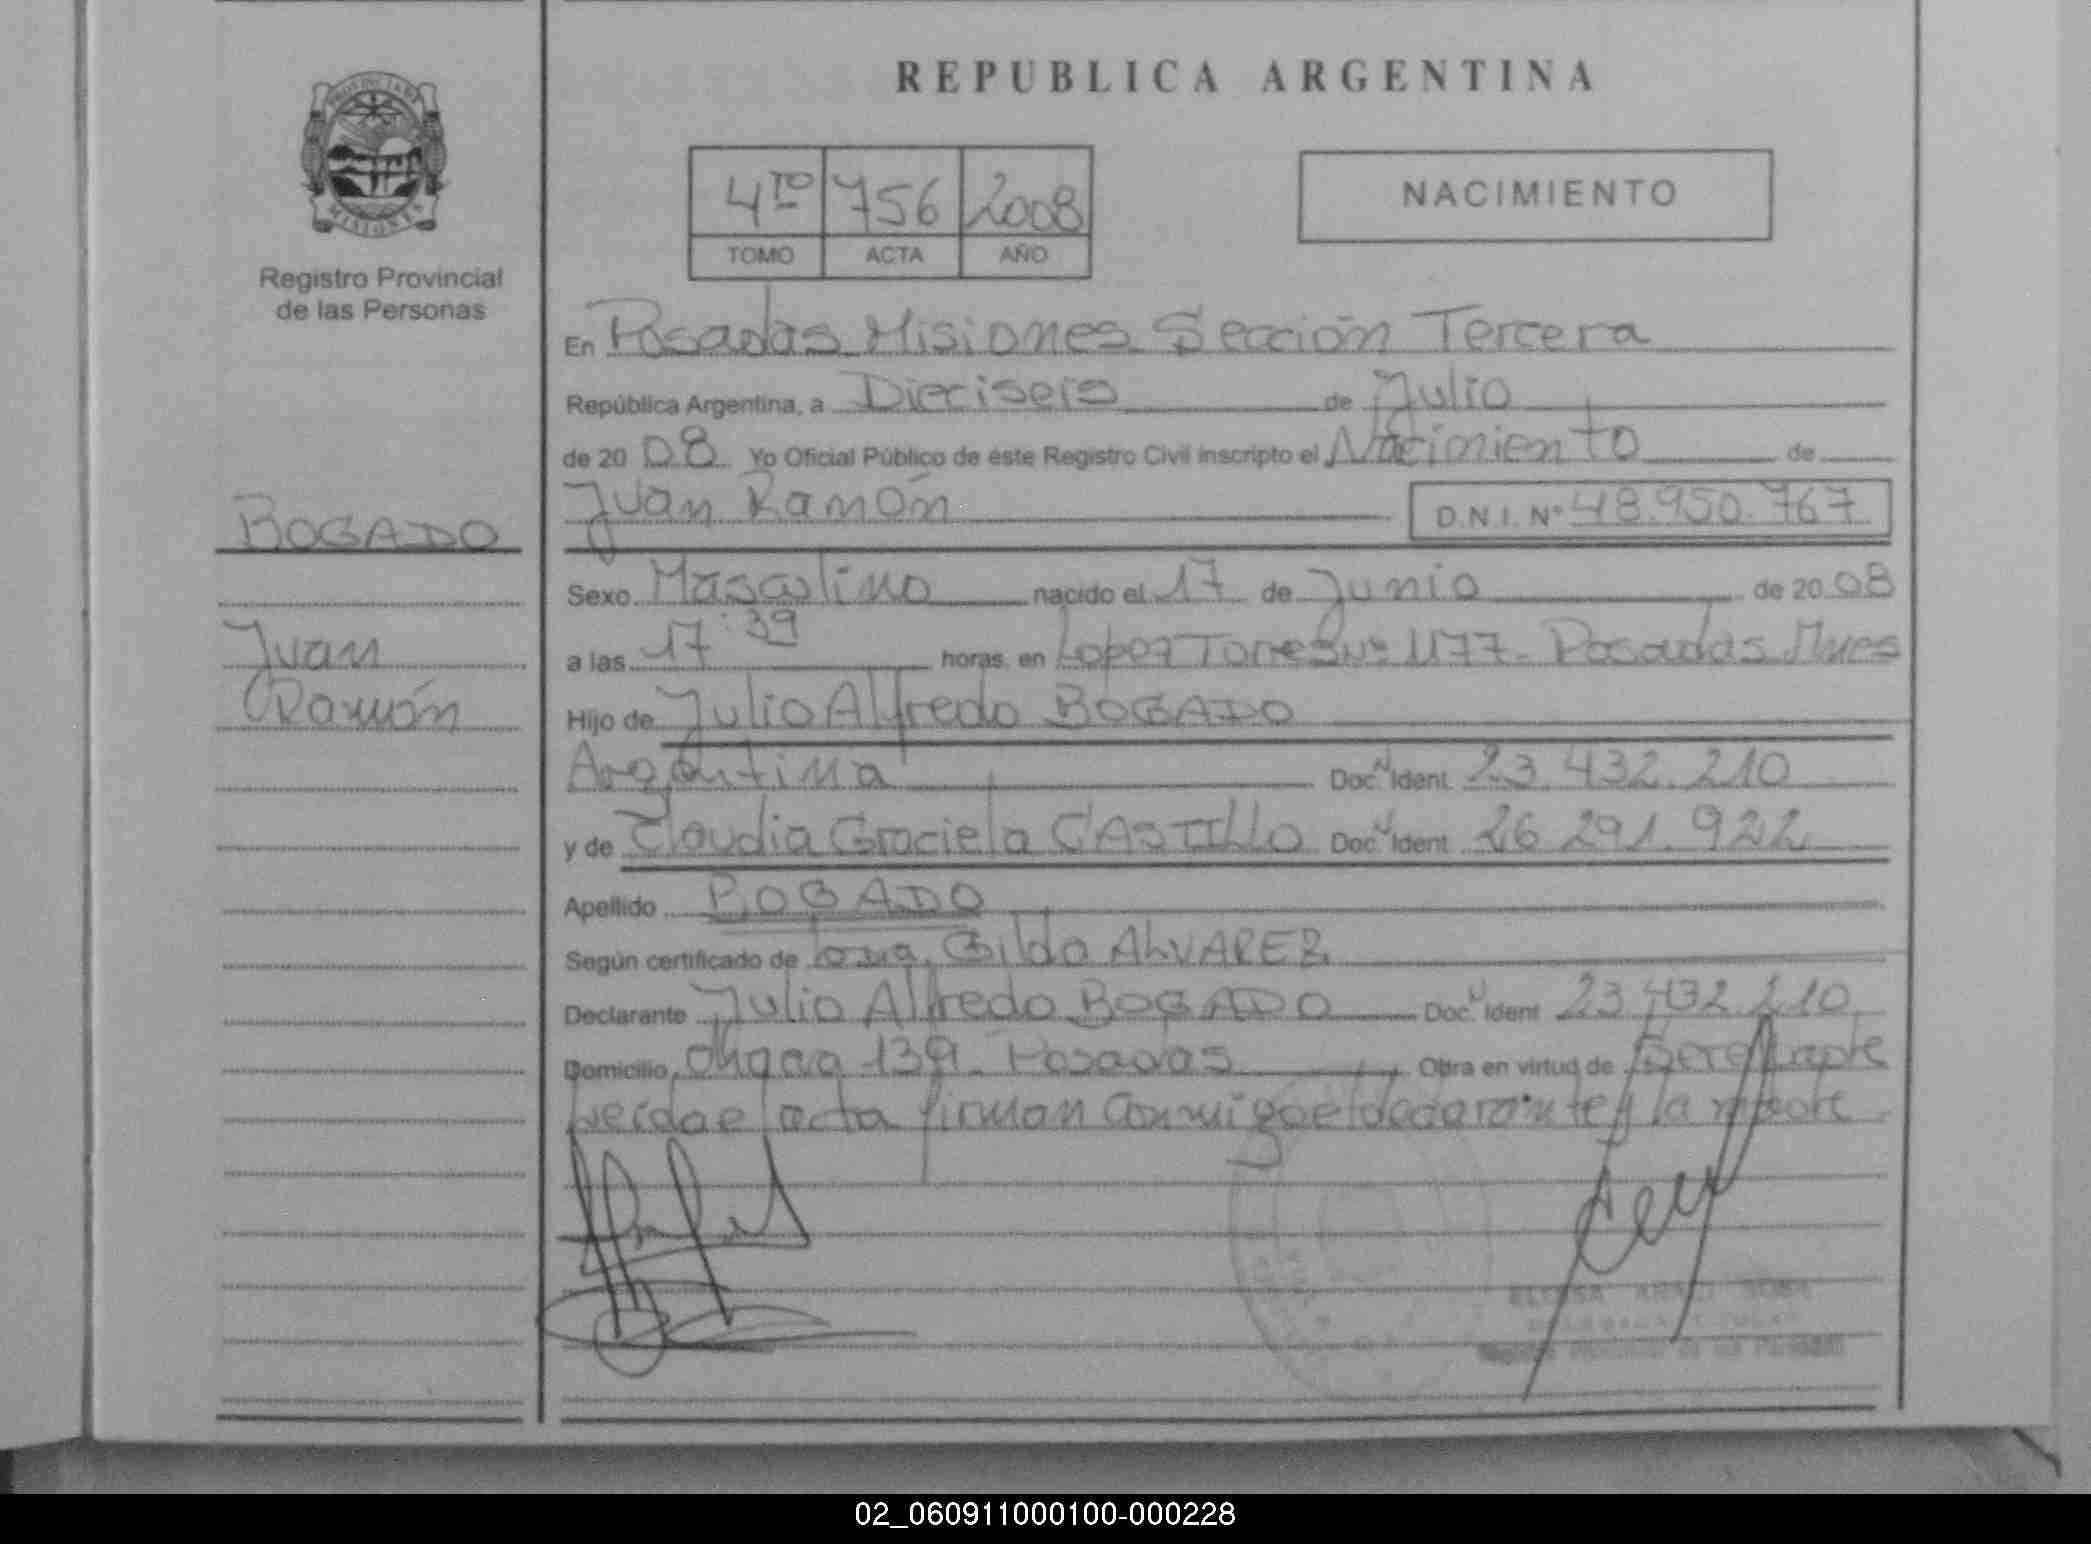 REPUBLICA ARGENTINA
PROVINCIA DE
MISIONES
Registro Provincial
de las Personas
4TO 756 2008
TOMO ACTA AÑO
NACIMIENTO
En Posadas Misiones Sección Tercera
República Argentina, a Dieciseis de Julio
de 2008 Yo Oficial Público de éste Registro Civil inscripto el Nacimiento de
BOGADO
Juan Ramón D.N.I. Nº 48.950.767
Sexo Masculino nacido el 17 de Junio de 2008
Juan
a las 17:39 horas, en Lopez Torres Nº 1177- Posadas Mnes
Ramón
Hijo de Julio Alfredo BOGADO
Argentina Doc. Ident. 23.432.210
y de Claudia Graciela CASTILLO Doc. Ident 26 291.922
Apellido BOGADO
Según certificado de Gilda ALVAREZ
Declarante Julio Alfredo BOGADO Doc. Ident 23.432.210
Domicilio 139- Posadas Obra en virtud de
leida el acta firman conmigo el declarante y la madre
02_060911000100-000228